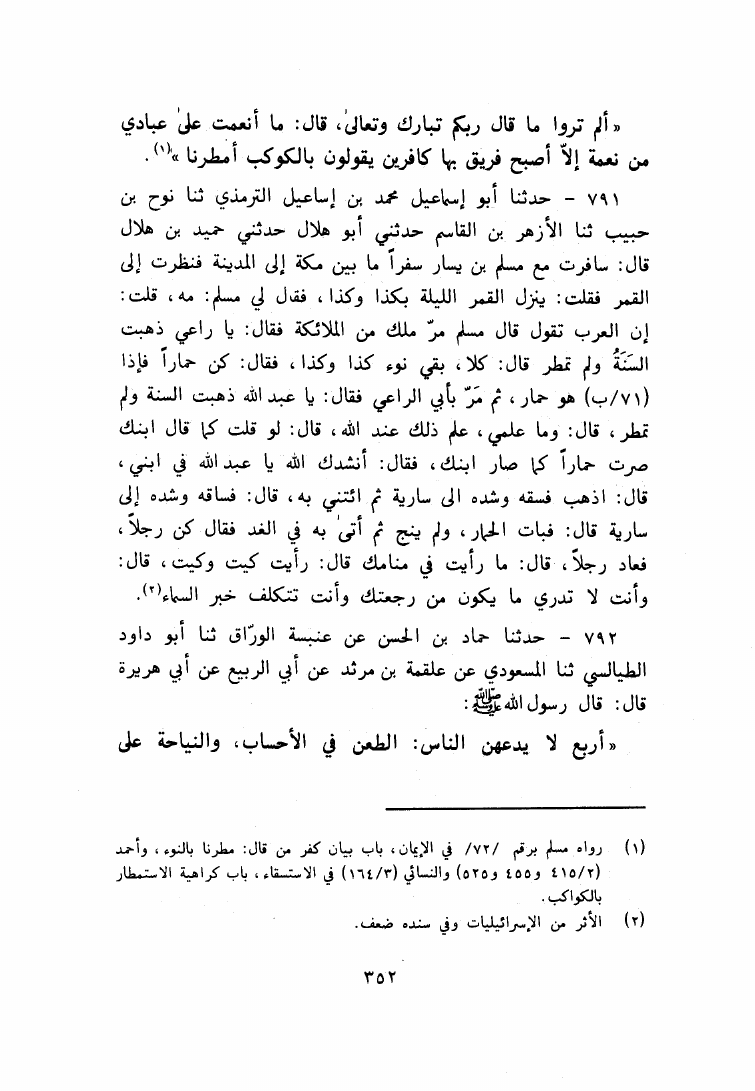 « ألم تروا ما قال ربكم تبارك وتعالىٰ، قال: ما أنعمت علىٰ عبادي
من نعمة إلاّ أصبح فريق بها كافرين يقولون بالكوكب أمطرنا »(١).
٧٩١ - حدثنا أبو إسماعيل محمد بن إساعيل الترمذي ثنا نوح بن
حبيب ثنا الأزهر بن القاسم حدثني أبو هلال حدثني حميد بن هلال
قال: سافرت مع مسلم بن يسار سفراً ما بين مكة إلى المدينة فنظرت إلى
القمر فقلت: ينزل القمر الليلة بكذا وكذا، فقال لي مسلم: مه، قلت:
إن العرب تقول قال مسلم مرّ ملك من الملائكة فقال: يا راعي ذهبت
السَنَةُ ولم تمطر قال: كلا، بقي نوء كذا وكذا، فقال: كن حماراً فإذا
(٧١/ب) هو حمار، ثم مَرّ بأبي الراعي فقال: يا عبد الله ذهبت السنة ولم
تمطر، قال: وما علمي، علم ذلك عند الله، قال: لو قلت كما قال ابنك
صرت حماراً كما صار ابنك، فقال: أنشدك الله يا عبد الله في ابني،
قال: اذهب فسقه وشده الى سارية ثم ائتني به، قال: فساقه وشده إلى
سارية قال: فبات الحمار، ولم ينج ثم أتىٰ به في الغد فقال كن رجلاً،
فعاد رجلاً، قال: ما رأيت في منامك قال: رأيت كيت وكيت، قال:
وأنت لا تدري ما يكون من رجعتك وأنت تتكلف خبر السماء(٢).
٧٩٢ - حدثنا حماد بن الحسن عن عنبسة الورّاق ثنا أبو داود
الطيالسي ثنا المسعودي عن علقمة بن مرثد عن أبي الربيع عن أبي هريرة
قال: قال رسول الله ﷺ:
« أربع لا يدعهن الناس: الطعن في الأحساب، والنياحة على
(١) رواه مسلم برقم /٧٢/ في الإيمان، باب بيان كفر من قال: مطرنا بالنوء، وأحمد
(٤١٥/٢ و٤٥٥ و٥٢٥) والنسائي (١٦٤/٣) في الاستسقاء، باب كراهية الاستمطار
بالكواكب.
(٢) الأثر من الإسرائيليات وفي سنده ضعف.
٣٥٢